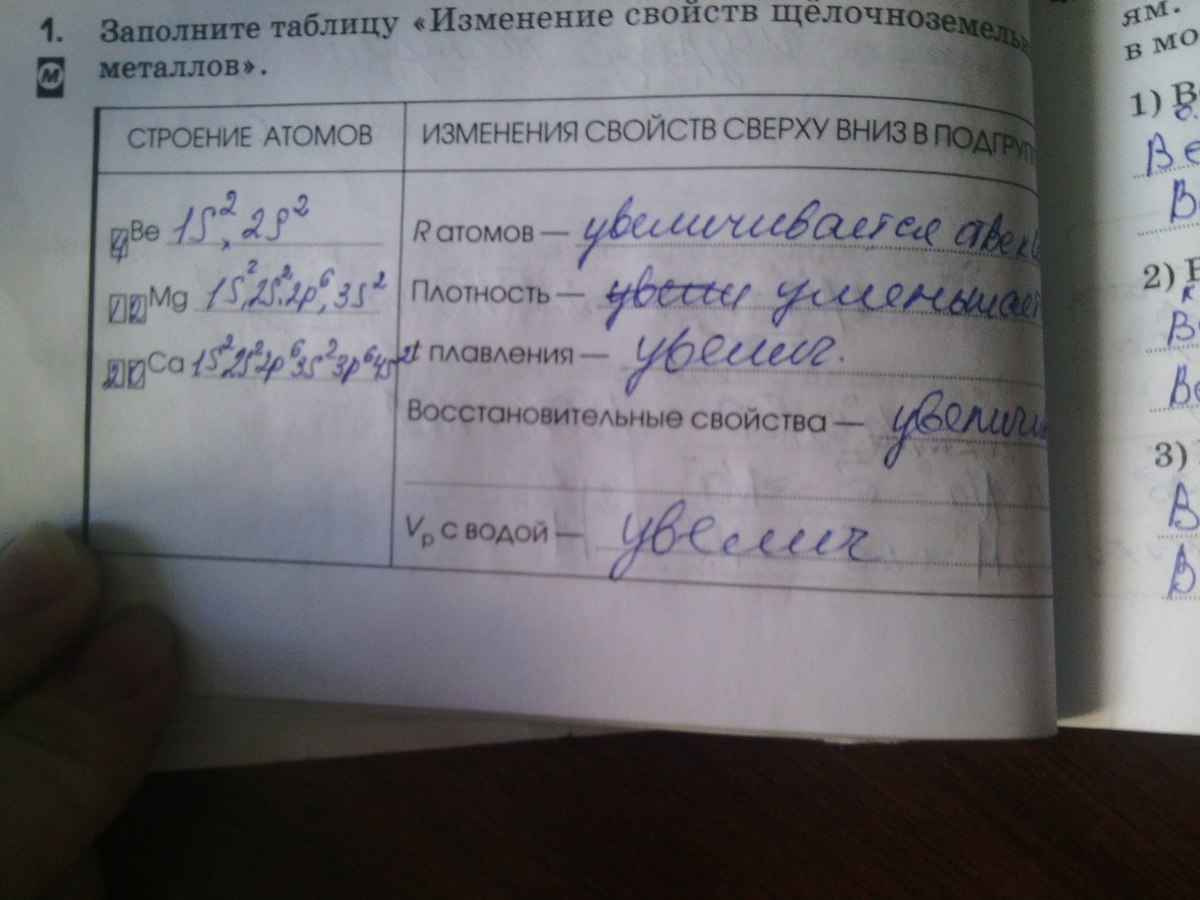 1. Заполните таблицу «Изменение свойств щёлочноземель
металлов».
М
СТРОЕНИЕ АТОМОВ
ИЗМЕНЕНИЯ СВОЙСТВ СВЕРХУ ВНИЗ В ПОДГРУП
4 Be 1S², 2S²
R атомов — увеличивается
12 Mg 1S², 2S², 2p⁶, 3S²
Плотность — уменьшает
20 Ca 1S² 2S² 2p⁶ 3S² 3p⁶ 4S²
t плавления — увелич.
Восстановительные свойства — увеличи
Vр с водой — увелич
ям.
в мо
1) В
Ве
В
2)
В
Ве
3)
В
В